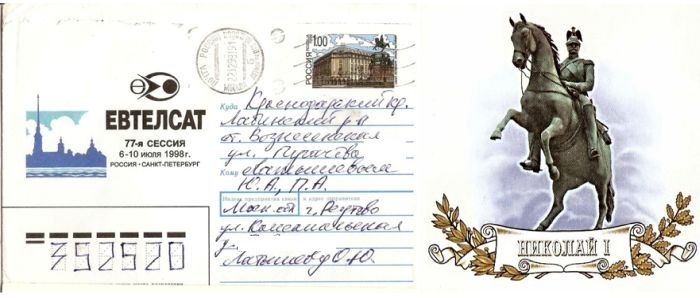 ЕВТЕЛСАТ
77-я СЕССИЯ
6-10 июля 1998г.
РОССИЯ · САНКТ-ПЕТЕРБУРГ
1.00
РОССИЯ
Куда Краснодарский кр.
Лабинский р-н
ст. Вознесенская
ул. Пугачёва
Кому Латышевым
Ю.А., П.А.
Индекс предприятия связи и адрес отправителя
Моск. обл г. Реутово
ул. Комсомольская
Латышев О.Ю.
352520
НИКОЛАЙ I